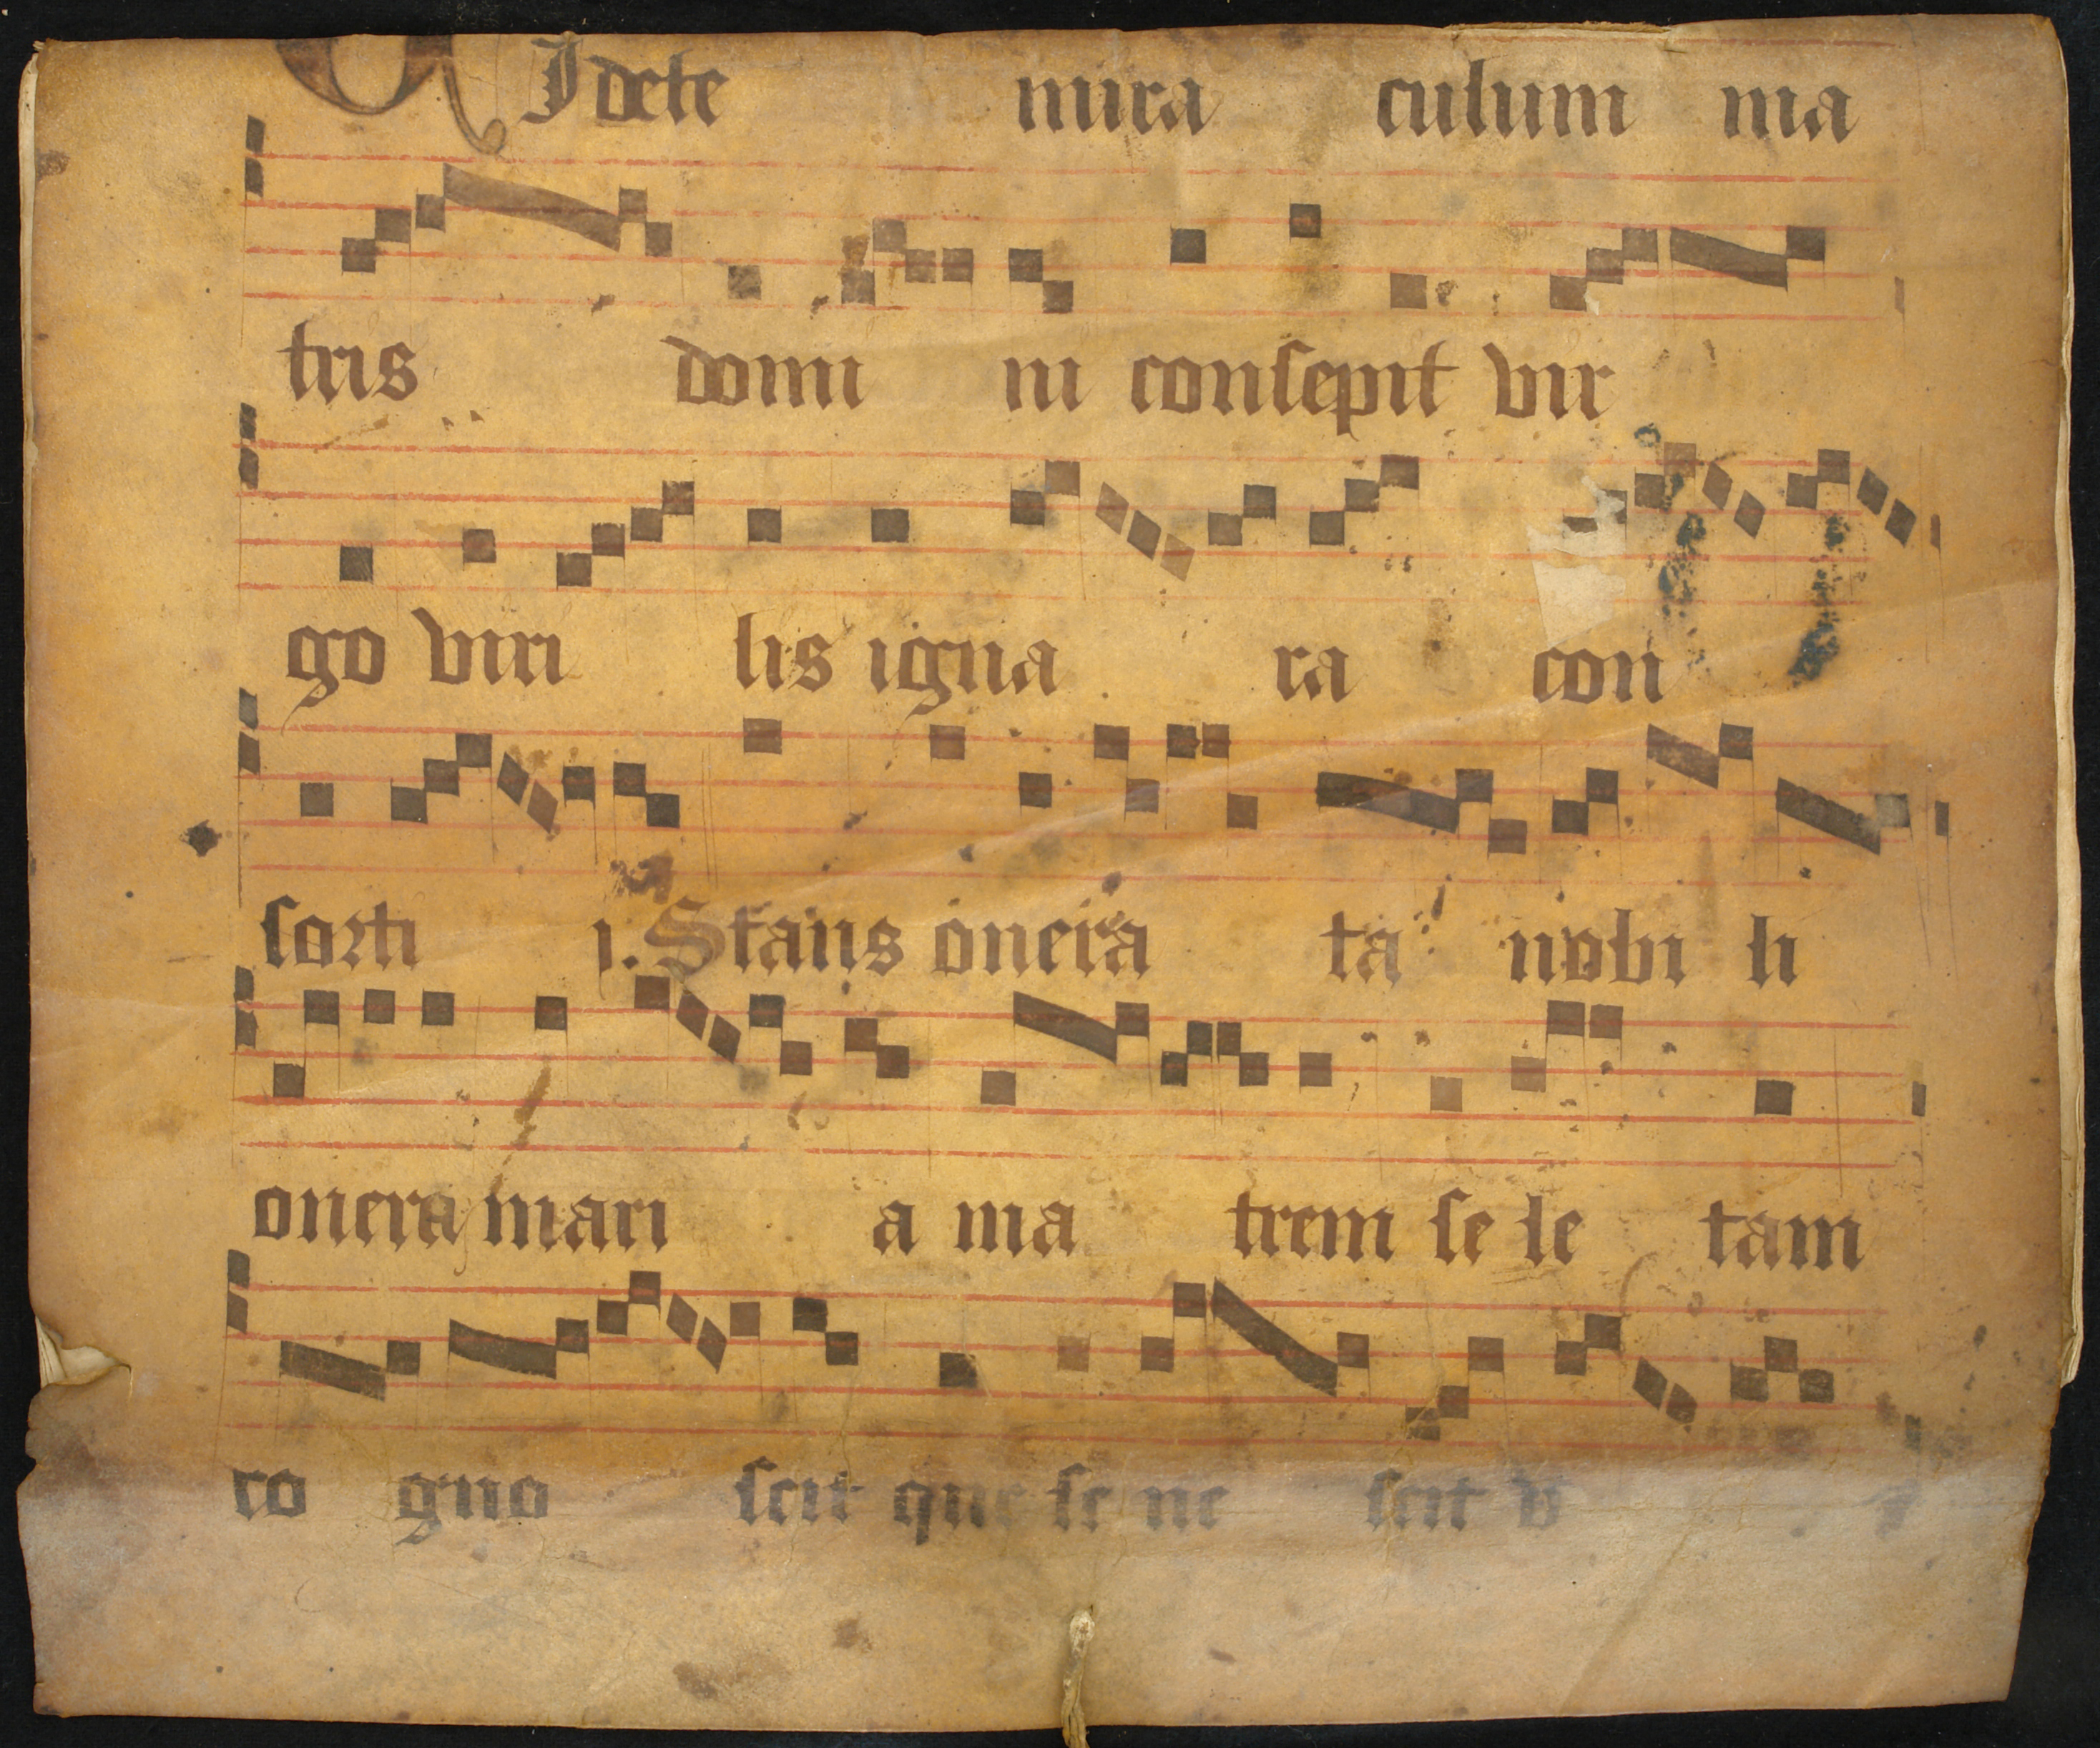 VIdete mira culum ma
tris domi ni consepit vir
go viri lis igna ra con
sorti j. Stans onera ta nobi li
onera mari a ma trem se le tam
co gno scit que se ne scit v